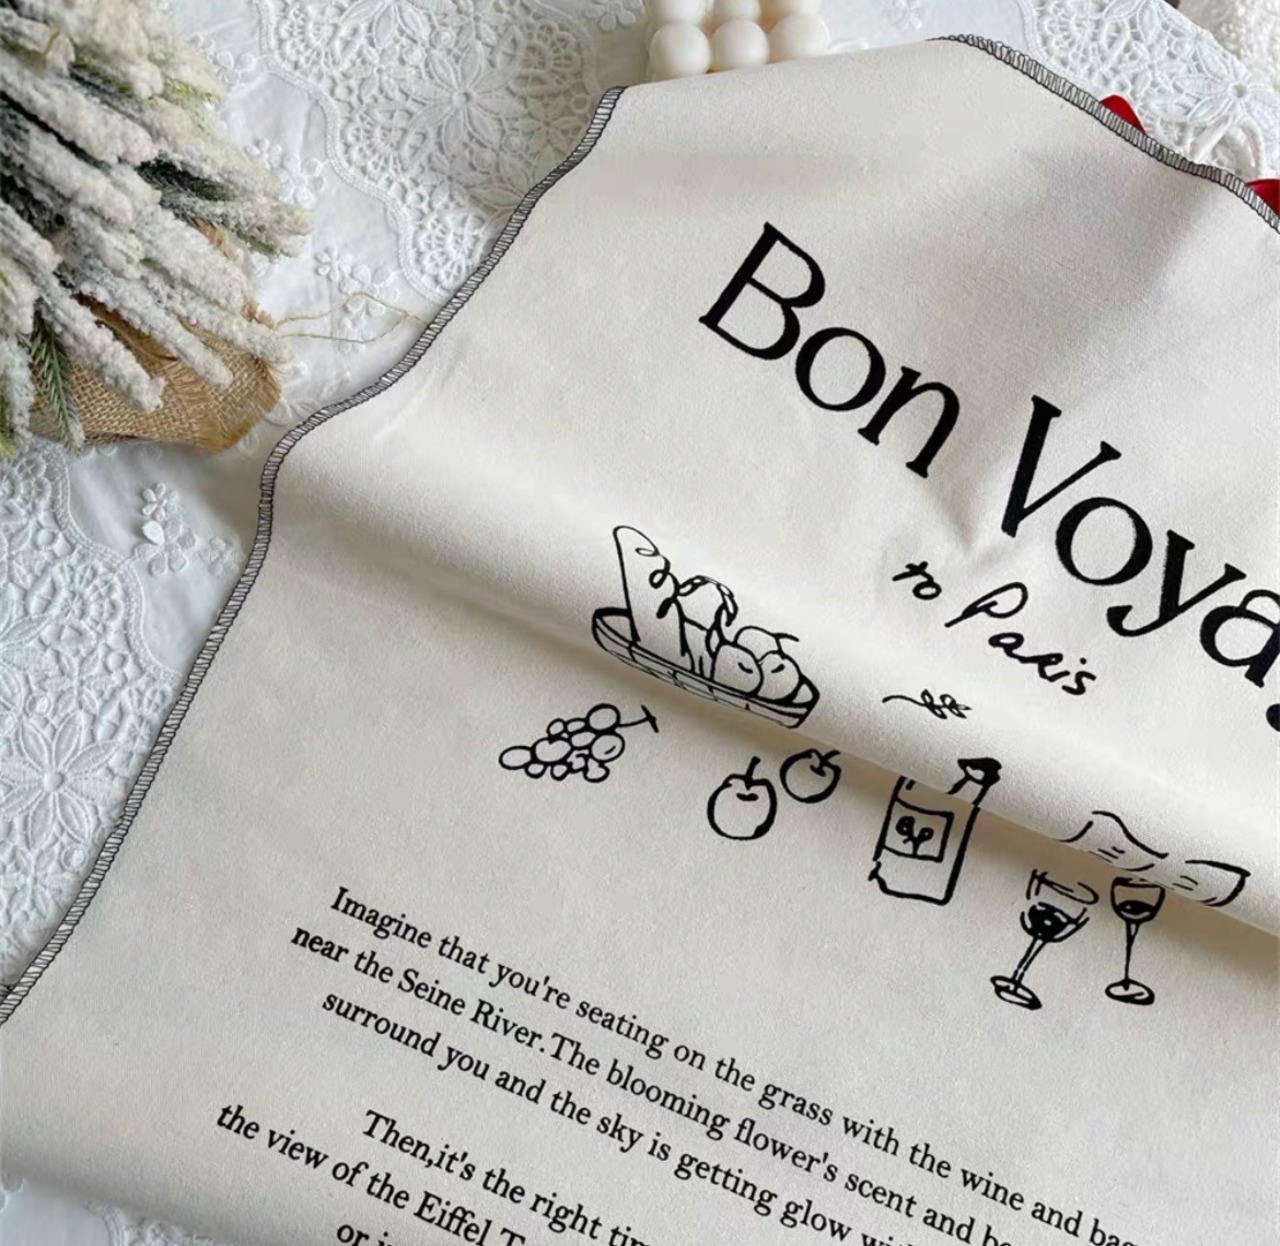 Bon Voya
to Paris
Imagine that you're seating on the grass with the wine and
near the Seine River.The blooming flower's scent and
surround you and the sky is getting glow
Then,it's the right
the view of the Eiffel
or